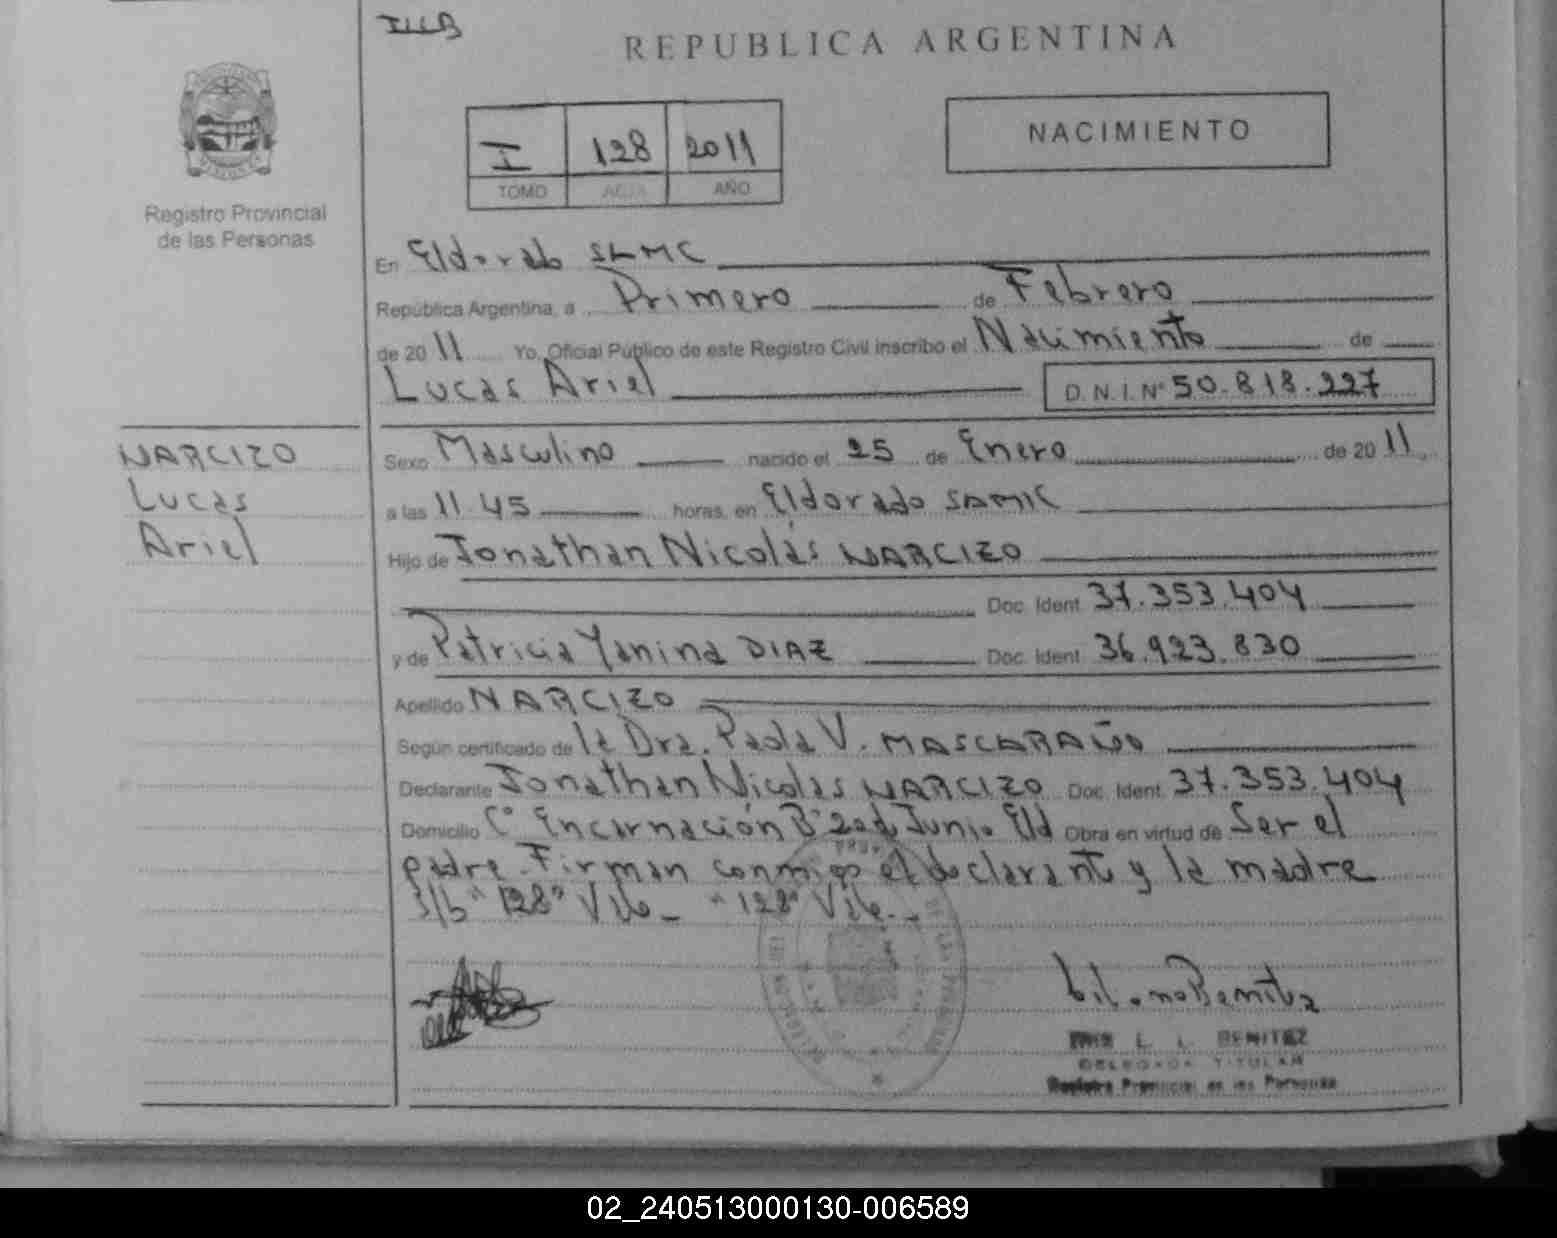 REPUBLICA ARGENTINA
I 128 2011
TOMO ACTA AÑO
NACIMIENTO
Registro Provincial
de las Personas
En Eldorado SAMIC
República Argentina, a Primero de Febrero
de 2011 Yo, Oficial Público de este Registro Civil inscribo el Nacimiento de
Lucas Ariel D.N.I.Nº 50.818.227
NARCIZO
Lucas
Ariel
Sexo Masculino nacido el 25 de Enero de 2011
a las 11 45 horas, en Eldorado SAMIC
Hijo de Jonathan Nicolás NARCIZO
Doc. Ident. 37.353.404
y de Patricia Yanina DIAZ Doc. Ident. 36.923.830
Apellido NARCIZO
Según certificado de la Dra. Paola V. MASCARAÑO
Declarante Jonathan Nicolás NARCIZO Doc. Ident. 37.353.404
Domicilio Cº Encarnación Bº 20 de Junio Eld Obra en virtud de Ser el
padre. Firman conmigo el declarante y la madre
s/b "128" Vile. "128" Vile.
L. L. BENITEZ
DELEGADA TITULAR
Registro Provincial de las Personas
02_240513000130-006589